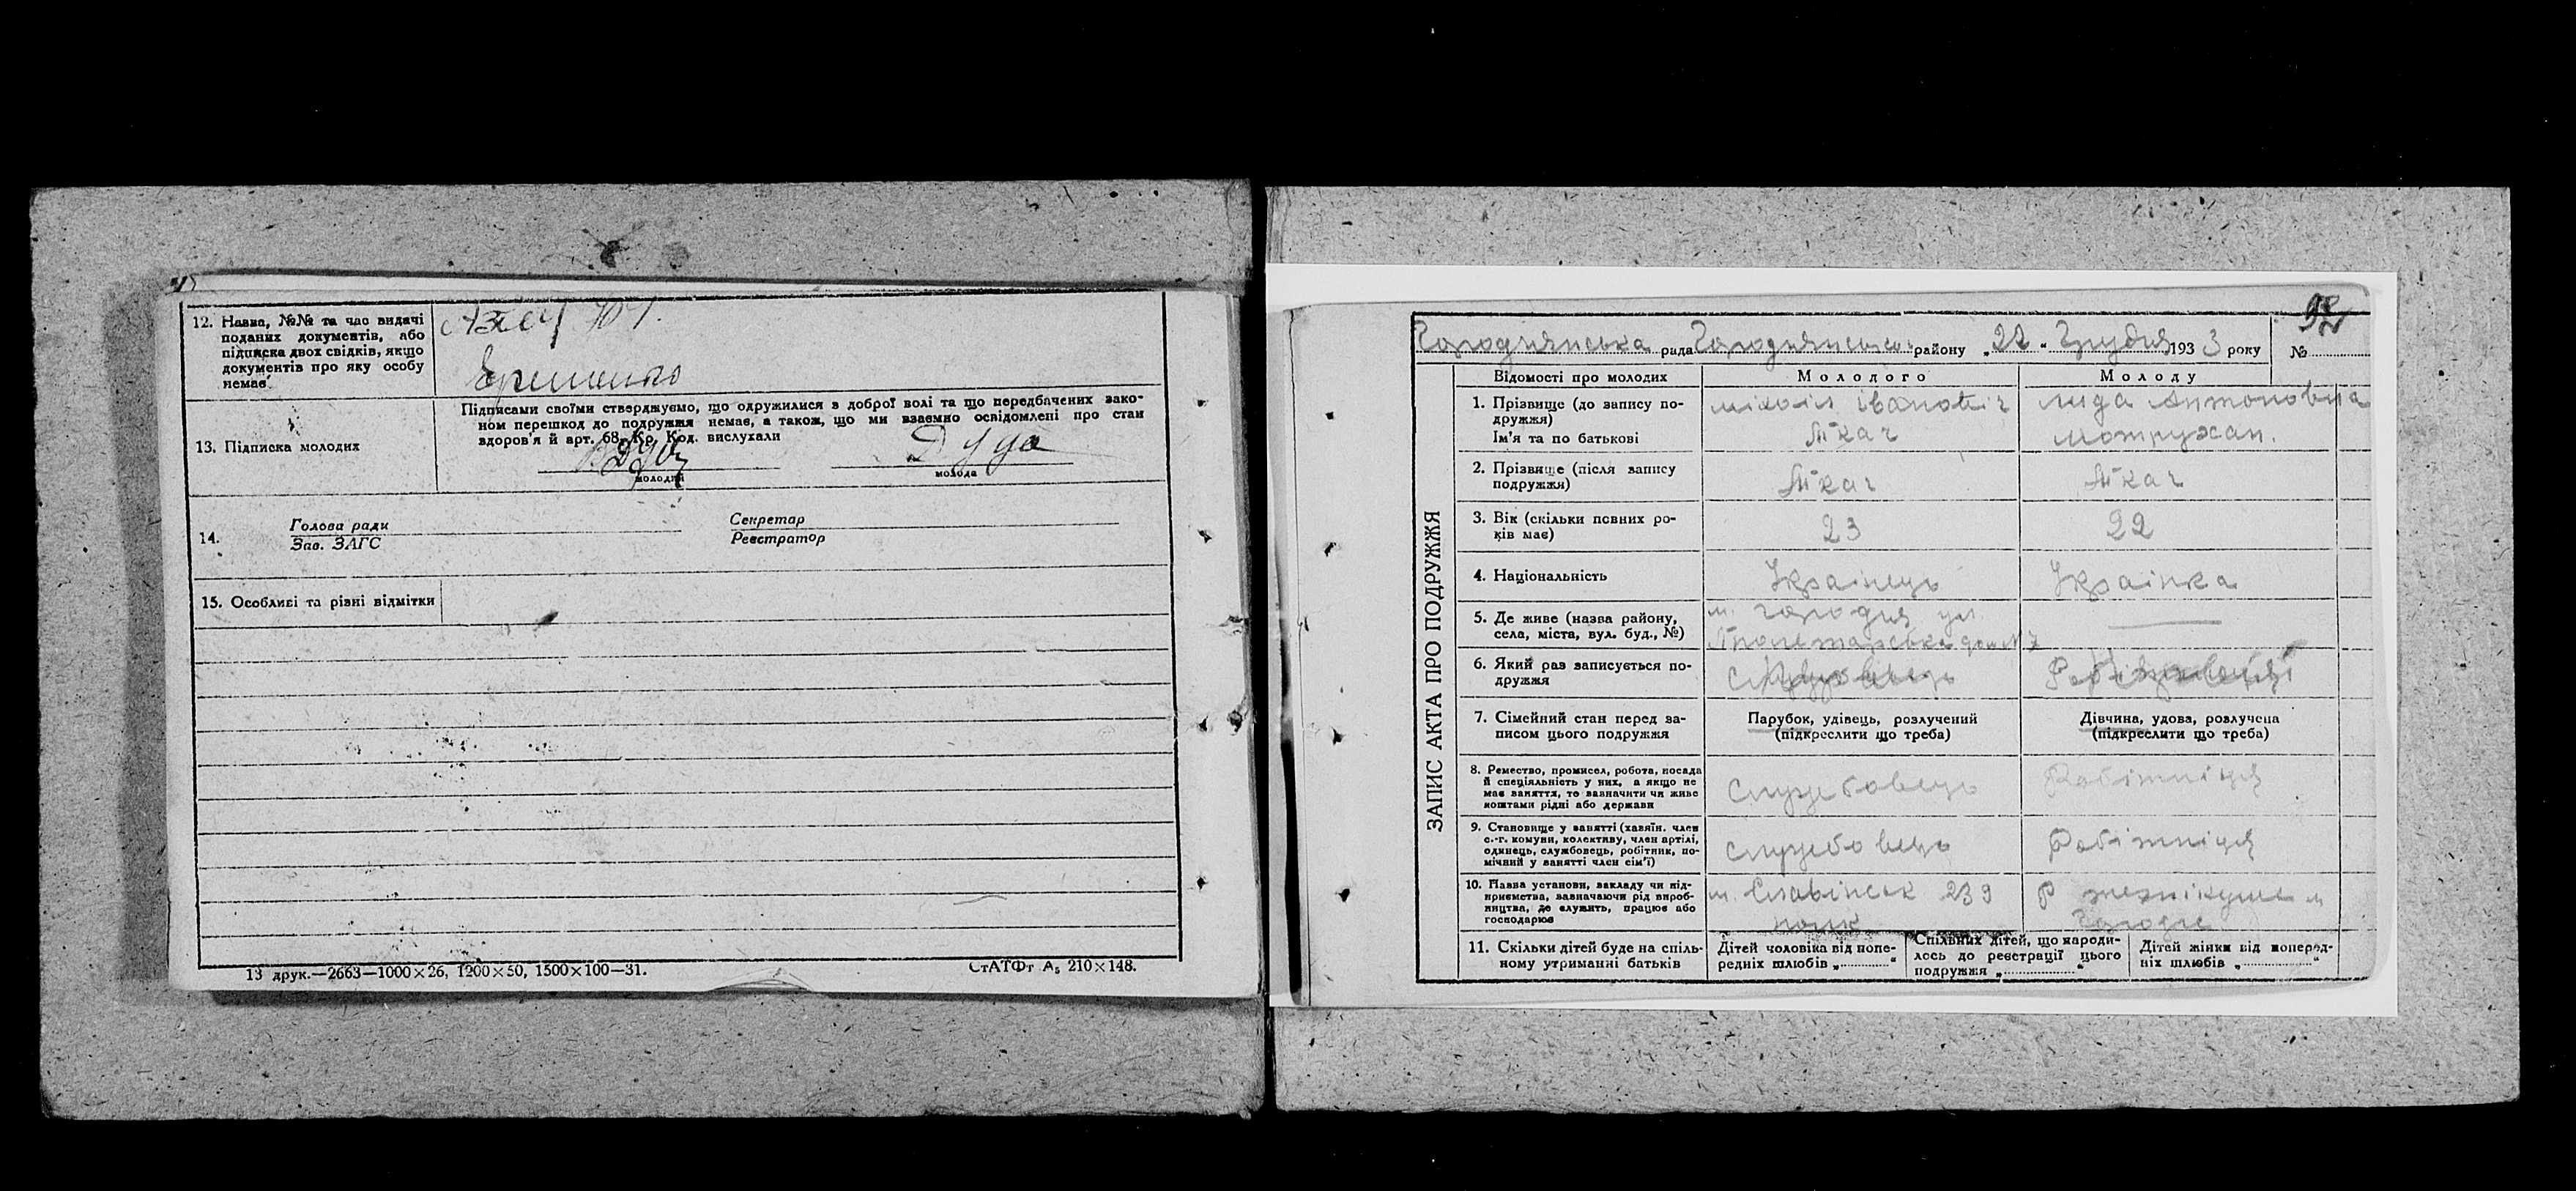 12. Назва, №№ та час видачі
поданих документів, або
підписка двох свідків, якщо
документів про яку особу
немає.
Єрешенко
13. Підписка молодих
Підписами своїми стверджуємо, що одружилися з доброї волі та що передбачених зако-
ном перешкод до подружжя немає, а також, що ми взаємно освідомлені про стан
здоров'я й арт. 68 Кр. Код. вислухали
Дуда
молодий
молода
14.
Голова ради
Зав. ЗАГС
Секретар
Реєстратор
15. Особливі та різні відмітки
13 друк.—2663—1000×26, 1200×50, 1500×100—31.
СтАТФт А₅ 210×148.
92
Городнянська рада Городнянського району „22" Грудня 1933 року №
ЗАПИС АКТА ПРО ПОДРУЖЖЯ
Відомості про молодих
Молодого
Молоду
1. Прізвище (до запису по-
дружжя)
Ім'я та по батькові
міхаіл іванавіч
Ткач
лида Антоновна
2. Прізвище (після запису
подружжя)
Ткач
Ткач
3. Вік (скільки повних ро-
ків має)
23
22
4. Національність
Украінець
Украінка
5. Де живе (назва району,
села, міста, вул. буд., №)
м. Городня ул.
Пролетарська дом № 7
6. Який раз записується по-
дружжя
7. Сімейний стан перед за-
писом цього подружжя
Парубок, удівець, розлучений
(підкреслити що треба)
Дівчина, удова, розлучена
(підкреслити що треба)
8. Ремество, промисел, робота, посада
й спеціяльність у них, а якщо не
має заняття, то зазначити чи живе
коштами рідні або держави
службовець
Робітниця
9. Становище у занятті (хазяїн, член
с.-г. комуни, колективу, член артілі,
одинець, службовець, робітник, по-
мічний у занятті член сім'ї)
службовець
Робітниця
10. Назва установи, закладу чи під-
приємства, зазначаючи рід вироб-
ництва, де служить, працює або
господарює
м. Славінськ 239
полк
11. Скільки дітей буде на спіль-
ному утриманні батьків
Дітей чоловіка від попе-
редніх шлюбів „ "
Спільних дітей, що народи-
лось до реєстрації цього
подружжя „ "
Дітей жінки від поперед-
ніх шлюбів „ "